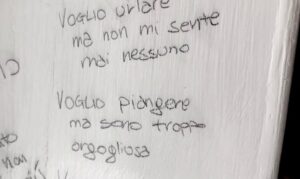 VOGLIO urlare
ma non mi sente
mai nessuno
VOGLIO piangere
ma sono troppo
orgogliosa
non